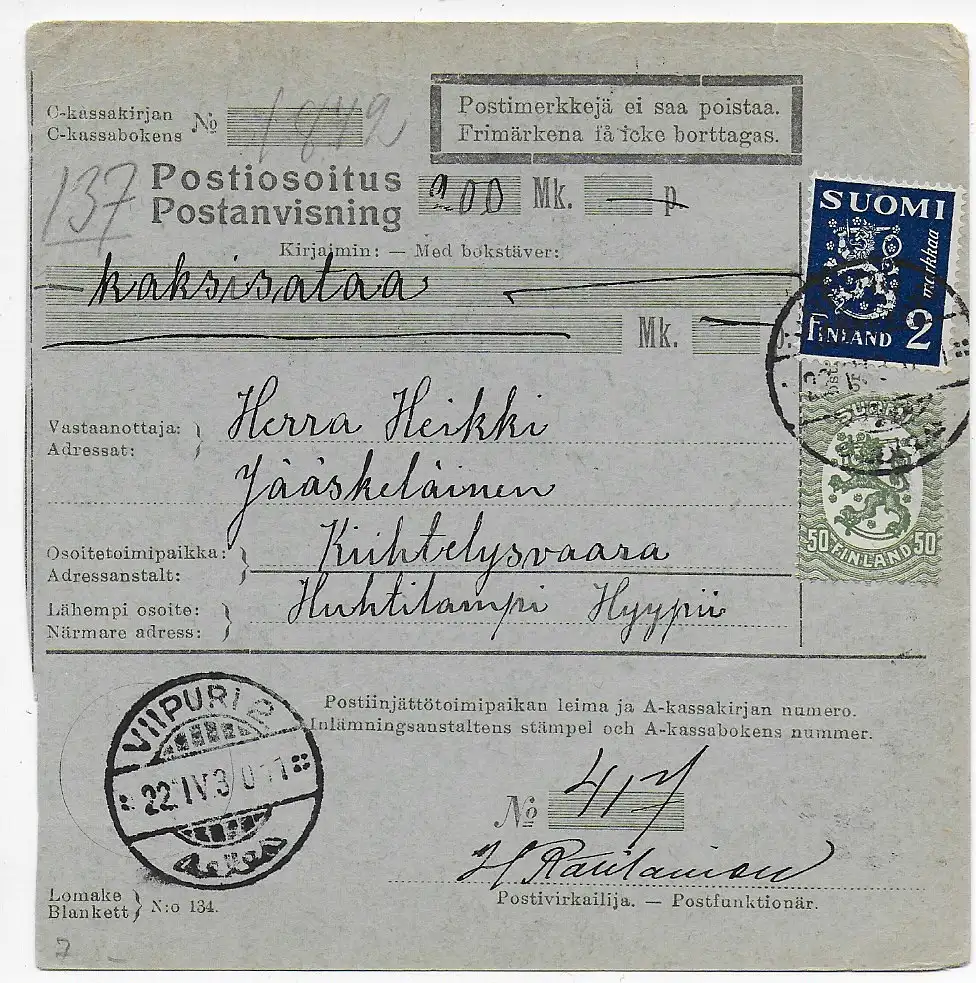 C-kassakirjan
C-kassabokens № 1849
Postimerkkejä ei saa poistaa.
Frimärkena få icke borttagas.
137
Postiosoitus
Postanvisning 200 Mk. — p
Kirjaimin: — Med bokstäver:
kaksisataa
Mk. —
SUOMI
2 markkaa
FINLAND
Vastaanottaja:
Adressat:
Herra Heikki
Jääskeläinen
SUOMI
50 FINLAND 50
Osoitetoimipaikka:
Adressanstalt:
Kiihtelysvaara
Lähempi osoite:
Närmare adress:
Huhtilampi Hyypii
VIIPURI 2
22.IV.30.11
Postiinjättötoimipaikan leima ja A-kassakirjan numero.
Inlämningsanstaltens stämpel och A-kassabokens nummer.
№ 417
H Rautamen
Postivirkailija. — Postfunktionär.
Lomake
Blankett N:o 134.